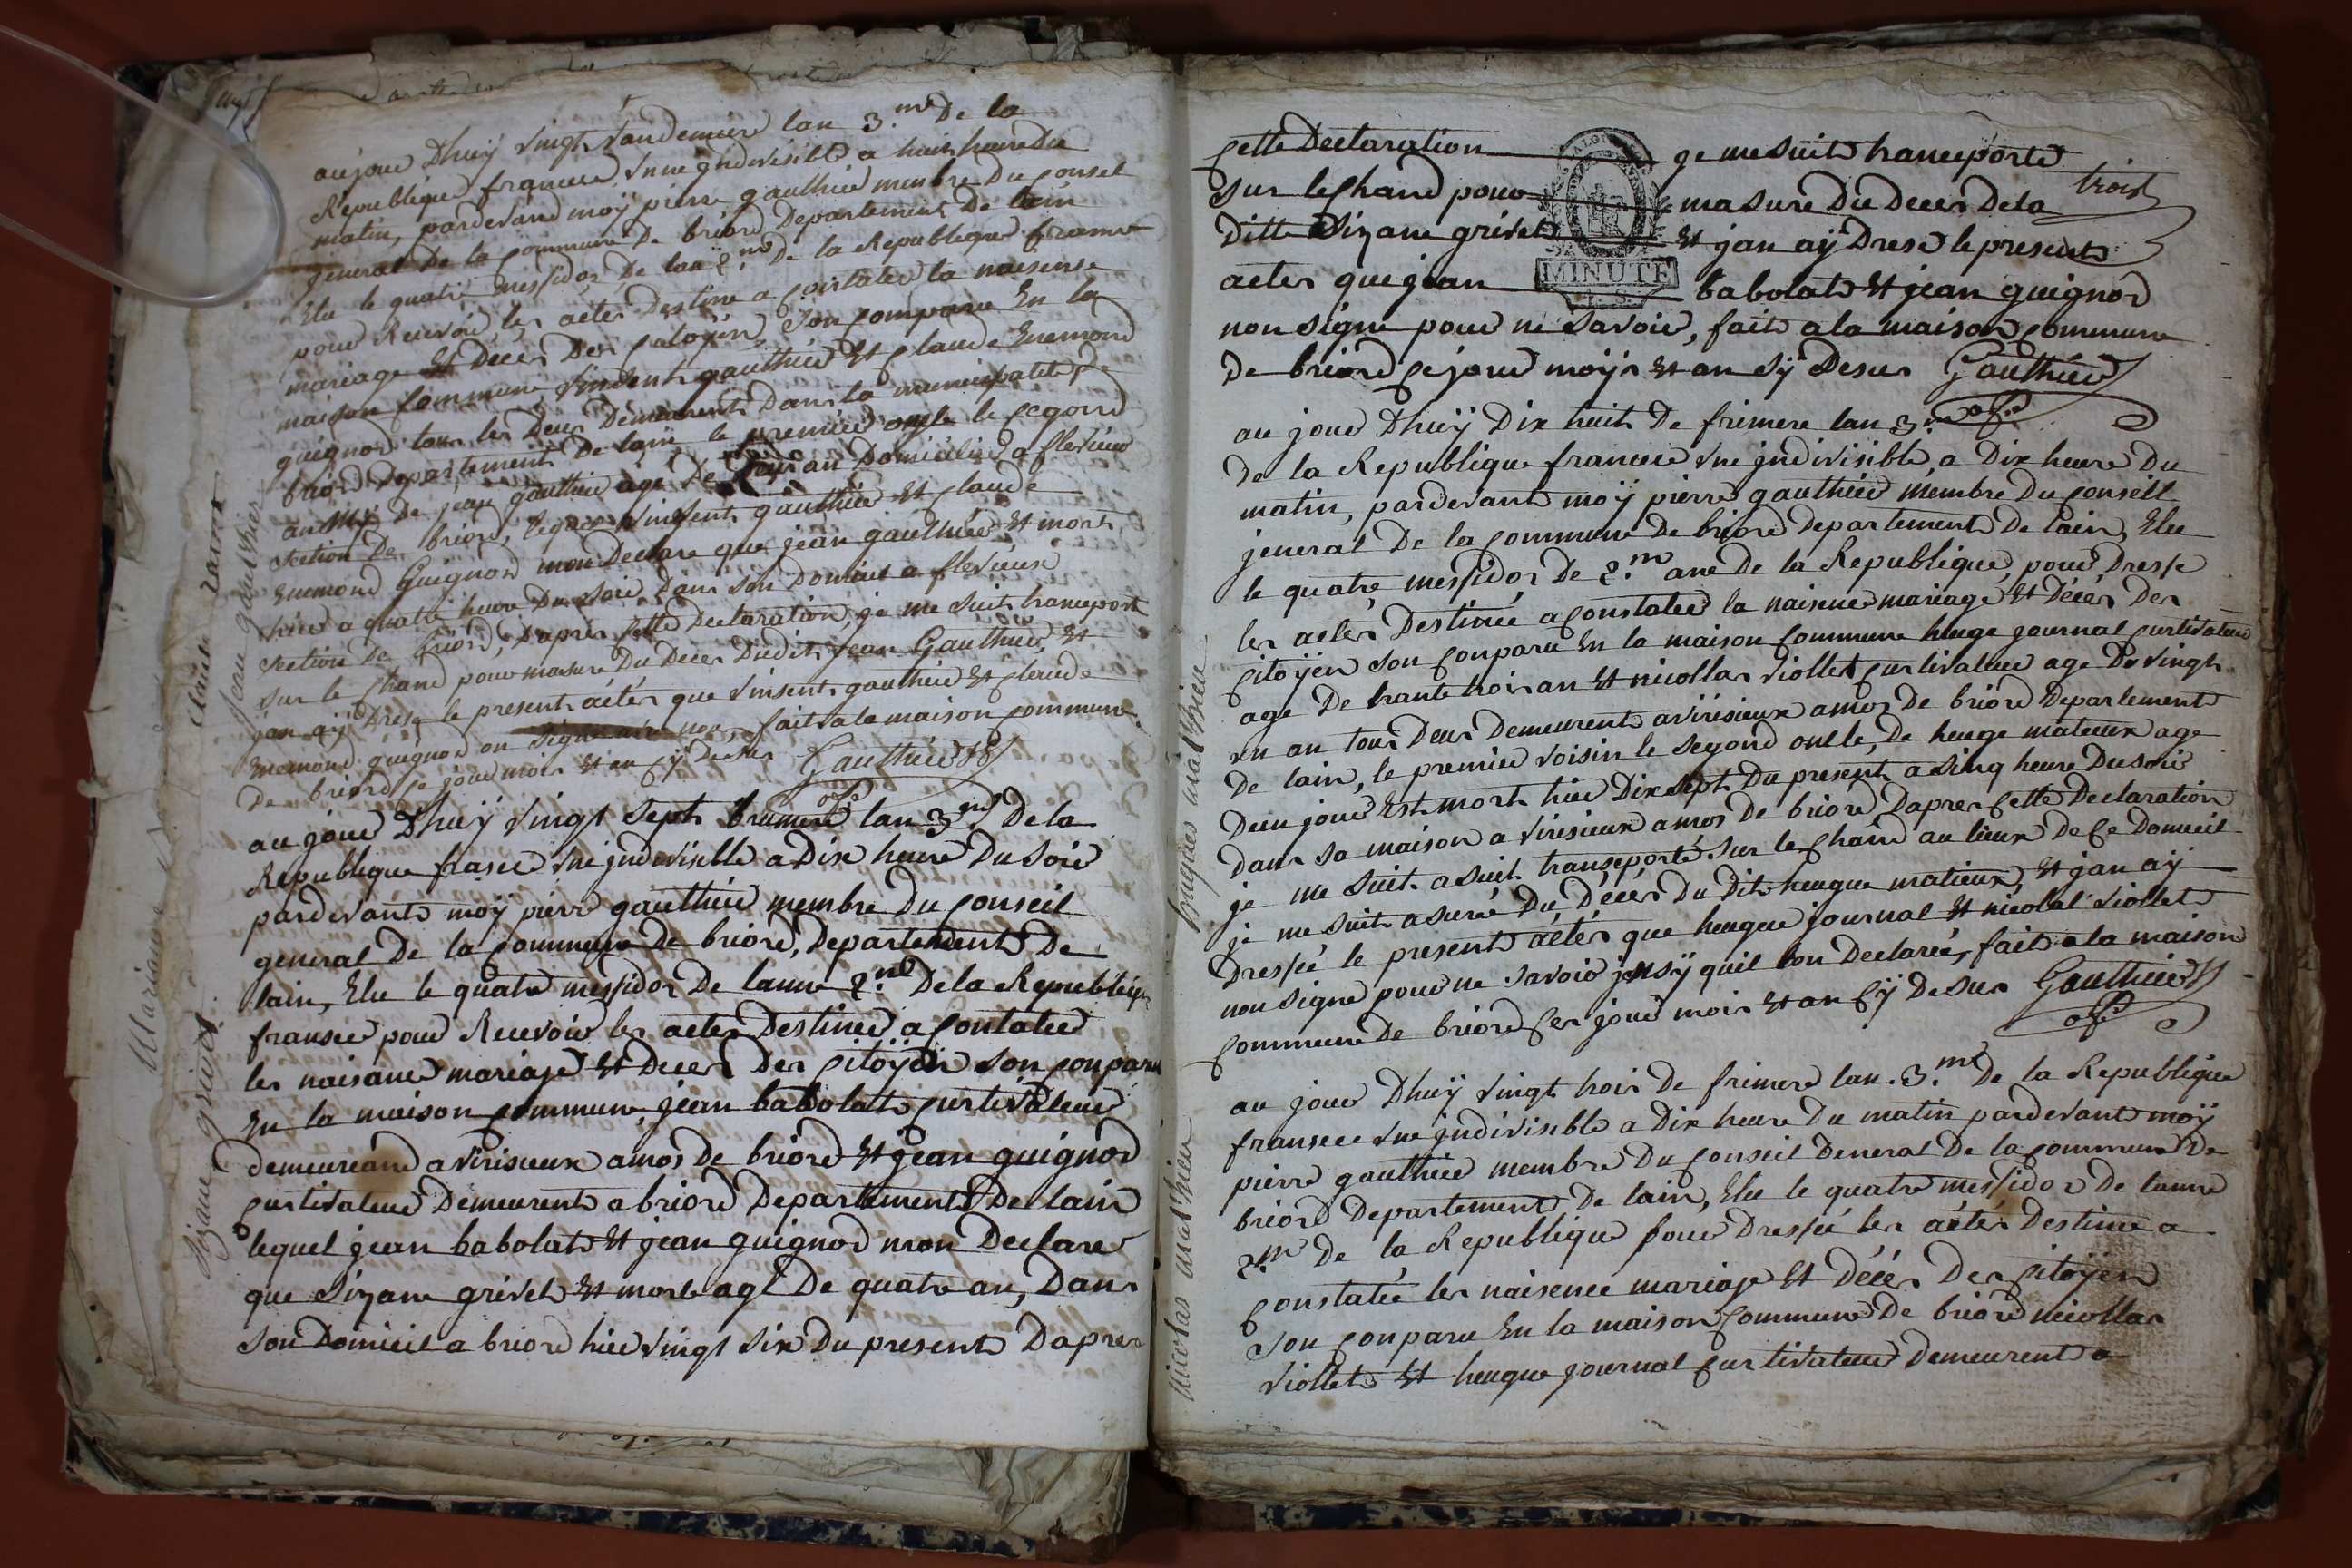 aujour Dhuÿ Vingt Vandemiere lan 3.me De la
Republique franceze Vnne jndivisible a huit heure Du
matin, pardevand moÿ pierre gauthier menbre Du Consel
general De la Commune De briord Departement De lain
Elu le quatre messidor De lan 2.me De la Republique franse
pour Recevoir les actes Destine a Constater la naisense
mariage Et Deces Des Citoÿen, Son Comparu En la
maison Commune Vinsent gauthier Et Claude Enemond
guignod tous les Deux Demeurents Dans la municipalite De
briord Departement De lain le premier oncle le Cegond
De jean gauthier age De an Domicilie a flevieux
Section De briord, lequel Vinsent gauthier Et Claude
Enemond Guignod mon Declare que jean gauthier Et mort
hier a quatre heure Du Soir Dans Son Domicil a flevieux
Section De briord, Dapres Cette Declaration, je me Suit transport
Sur le Chand pour masure Du Deces Dudit jean Gauthier, Et
jan aÿ Drese le present actes que Vinsent gauthier Et Claude
Enemond guignod on Signe non, fait a la maison Commune
De briord Ce jour mois Et an Cÿ Desus Gauthier
ofe
au jour Dhuÿ Vingt Sept brumere lan 3me De la
Republique franse Vne jndivisible a Dix heure Du Soir
pardevant moÿ pierre gauthier membre Du Conseil
general De la Commune De briord, Departement De
lain, Elu le quatre messidor De lanne 2.me De la Republique
franse pour Recevoir les actes Destinee a Contater
les naisance mariage Et Deces Des Citoÿen Son Conparu
En la maison Commune, jean babolat Curtivateur
demeureand a Virisieux amos De briord Et jean guignod
Curtivateur Demeurent a briord Departement De lain
lequel jean babolat Et jean guignod mon Declare
que Sizane grivet Et mort age De quatre an, Dans
Son Domicil a briord hier Vingt Six Du present Dapres
Jean gauthier
Sizane grivet
Cette Declaration je me Suit transeporte
Sur le Chand pour masure Du Deces De la
Ditte Sizane grivet Et jan aÿ Drese le present
actes que jean babolat Et jean guignod
non Signe pour ne Savoir, fait a la maison Commune
De briord Ce jour moÿs Et an Sÿ Desus Gauthier
trois
MINUTE
ofe
au jour Dhuÿ Dix huit De frimere lan 3.me
De la Republique franceze Vne jndivisible, a Dix heure Du
matin, pardevant moÿ pierre gauthier membre Du Conseil
jeneral De la Commune De briord Departement De lain, Elu
le quatre messidor De 2.me ane De la Republique, pour Dresse
les actes Destinee a Constater la naisence mariage Et Déces Des
Citoÿen Son Conparu En la maison Commune heuge journal Curtivateur
age De trante trois an Et nicollas Viollet Curtivateur age De Vingt
un an tous Deux Demeurent a Virisieux amos De briord Departement
De lain, le premier Voisin le Segond oncle, De heuge matieux age
Dun jour Est mort hier Dix Sept Du present a Sinq heure Du Soir
dans Sa maison a Virisieux amos De briord Dapres Cette Declaration
je me Suit a Suit transeporté Sur le Chand au lieux De Ce Domicil
je me Suit asuré Du Déces Du Dit heugue matieux, Et jan aÿ
Dressée le present actes que heugue journal Et nicolat Viollet
non Signe pour ne Savoir jnsÿ quil lon Declarée, fait a la maison
Commune De briord Ces jour mois Et an Cÿ Desus Gauthier
ofe
au jour Dhuÿ Vingt trois De frimere lan 3.me De la Republique
fransee Vne jndivisible a Dix heure Du matin pardevant moÿ
pierre gauthier membre Du Conseil Deneral De la Commune De
briord Departement De lain, Elu le quatre messidor De lanne
2.me De la Republique pour Dressée les actes Destine a
Constatée les naisenee mariage Et Déces Des Citoÿen
Son Conparu En la maison Commune De briord nicollas
Viollet Et heugue journal Curtivateur Demeurent a
hugues mathieu
Nicolas mathieu